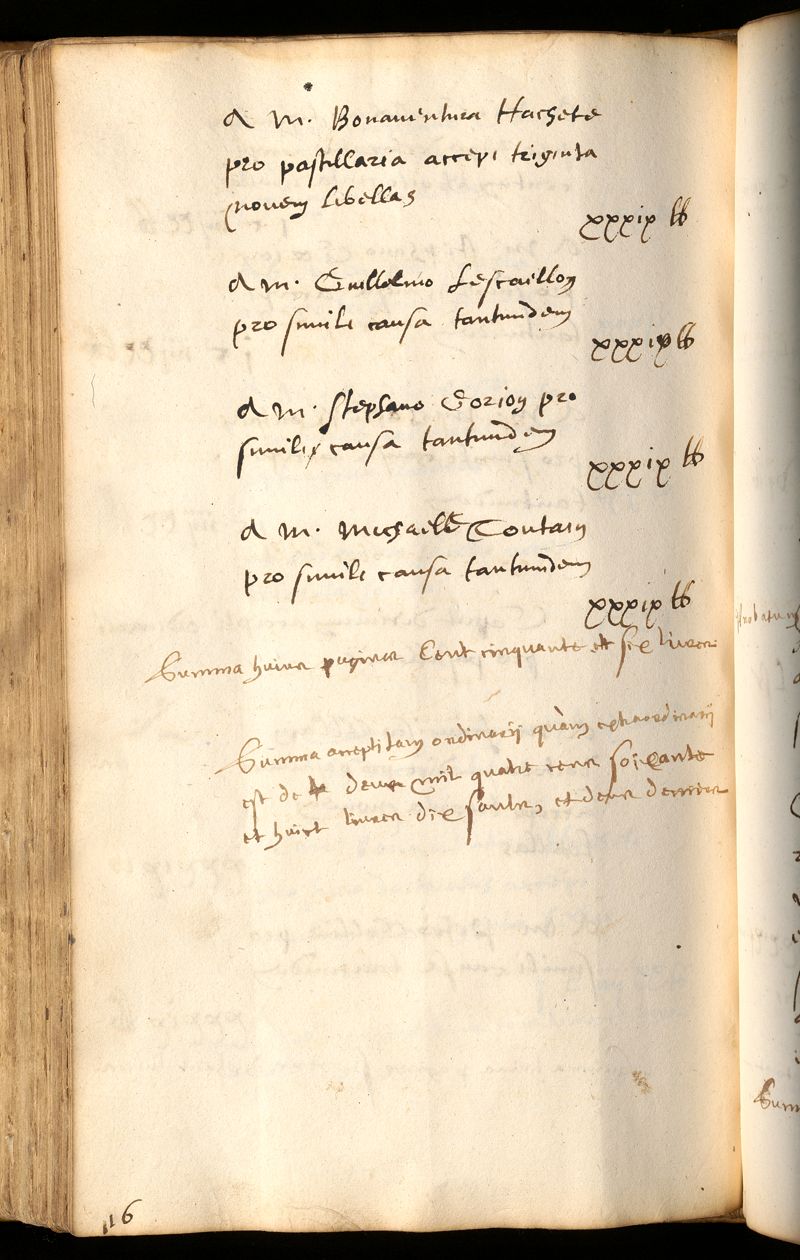 A M. Bonaventura Hachete
pro pastillaria accepi triginta
novem libellas
xxxix lb
A M. Guillelmo Lescaillon
pro simili causa tantundem
xxxix lb
A M. Stephano Gorion pro
simili causa tantundem
xxxix lb
A M. Michaele Contain
pro simili causa tantundem
xxxix lb
Summa huius paginae Cent cinquante et six livres
Summa accepti tam ordinarii quàm extraordinarii
est de deux mil quatre cens soixante
et huict livres dix soubz, et deux deniers
116